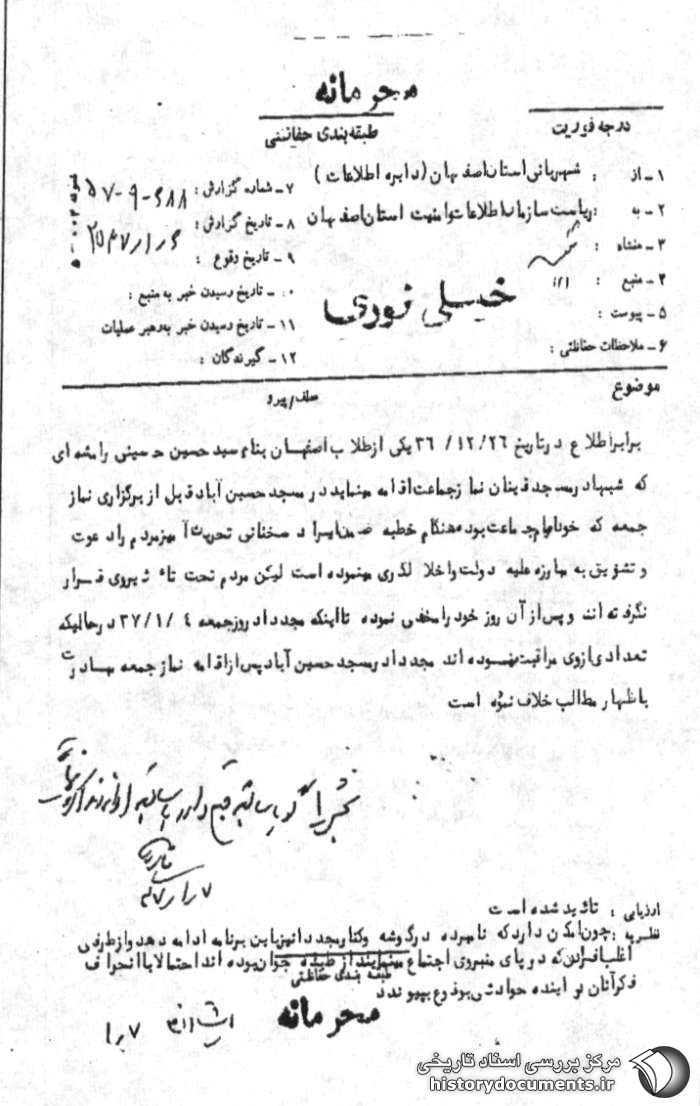 محرمانه
طبقه بندی حفاظتی
درجه فوریت
۱ـ از : شهربانی استان اصفهان (دایره اطلاعات)
۲ـ به : ریاست سازمان اطلاعات و امنیت استان اصفهان
۳ـ منشاء :
۴ـ منبع :
۵ـ پیوست :
۶ـ ملاحظات حفاظتی :
خیلی فوری
۷ـ شماره گزارش : ۵۷-۹-۴۸۸
۸ـ تاریخ گزارش :
۹ـ تاریخ وقوع :
۱۰ـ تاریخ رسیدن خبر به منبع :
۱۱ـ تاریخ رسیدن خبر به رهبر عملیات
۱۲ـ گیرندگان :
موضوع
عطف/پیرو
برابر اطلاع در تاریخ ۳۶/۱۲/۲۶ یکی از طلاب اصفهان بنام سید حسین حسینی رامشه ای
که شبها در مسجد قینان نماز جماعت اقامه مینماید در مسجد حسین آباد قبل از برگزاری نماز
جمعه که خود امام جماعت بوده هنگام خطبه ضمن ایراد سخنانی تحریک آمیز مردم را دعوت
و تشویق به مبارزه علیه دولت و اخلالگری مینموده است لیکن مردم تحت تاثیر وی قرار
نگرفته اند و پس از آن روز خود را مخفی نموده تا اینکه مجدد در روز جمعه ۳۷/۱/۴ در حالیکه
تعدادی از وی مراقبت مینموده اند مجدد در مسجد حسین آباد پس از اقامه نماز جمعه مبادرت
باظهار مطالب خلاف نموده است
ارزیابی : تائید شده است
نظریه : چون امکان دارد که نامبرده در گوشه و کنار مجددا نیز باین برنامه ادامه دهد و از طرفی
اغلب افرادی که در پای منبر وی اجتماع مینمایند از طبقه جوان بوده اند احتمالا با انحراف
طبقه بندی حفاظتی
فکر آنان در آینده حوادثی بوقوع بپیوندد
محرمانه
مرکز بررسی اسناد تاریخی
historydocuments.ir